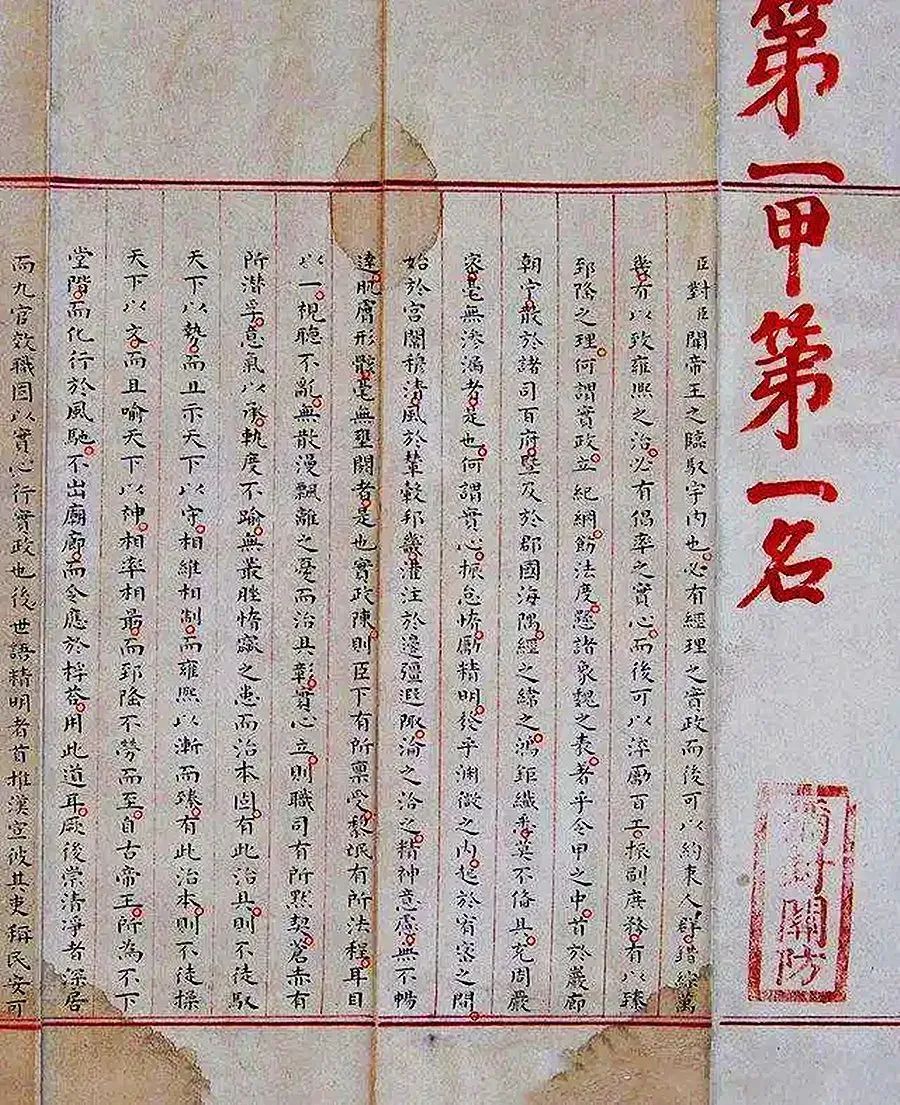 第一甲第一名
彌封關防
臣對臣聞帝王之臨馭宇內也必有經理之實政而後可以約束人群錯綜萬
幾有以致雍熙之治必有倡率之實心而後可以淬勵百工振刷庶務有以臻
郅隆之理何謂實政立紀綱飭法度懸諸象魏之表著乎令甲之中首於巖廊
朝宁散於諸司百府暨及於郡國海隅經之緯之鴻鉅纖悉莫不備具充周嚴
密毫無滲漏者是也何謂實心振怠惰勵精明發乎淵微之內起於宥密之間
始於宮闈穆清風於輦轂邦畿灌注於邊疆遐陬淪之洽之精神意慮無不暢
達肌膚形骸毫無壅閼者是也實政陳則臣下有所稟受黎氓有所法程耳目
以一視聽不亂無散漫飄離之憂而治具彰實心立則職司有所默契蒼赤有
所潛孚意氣以承軌度不踰無叢脞惰窳之患而治本固有此治具則不徒馭
天下以勢而且示天下以守相維相制而雍熙以漸而臻有此治本則不徒操
天下以文而且喻天下以神相率相最而郅隆不勞而至自古帝王所為不下
堂階而化行於風馳不出廟廊而令應於桴答用此道耳厥後崇清淨者深居
而九官效職固以實心行實政也後世語精明者首推漢宣彼其吏稱民安可